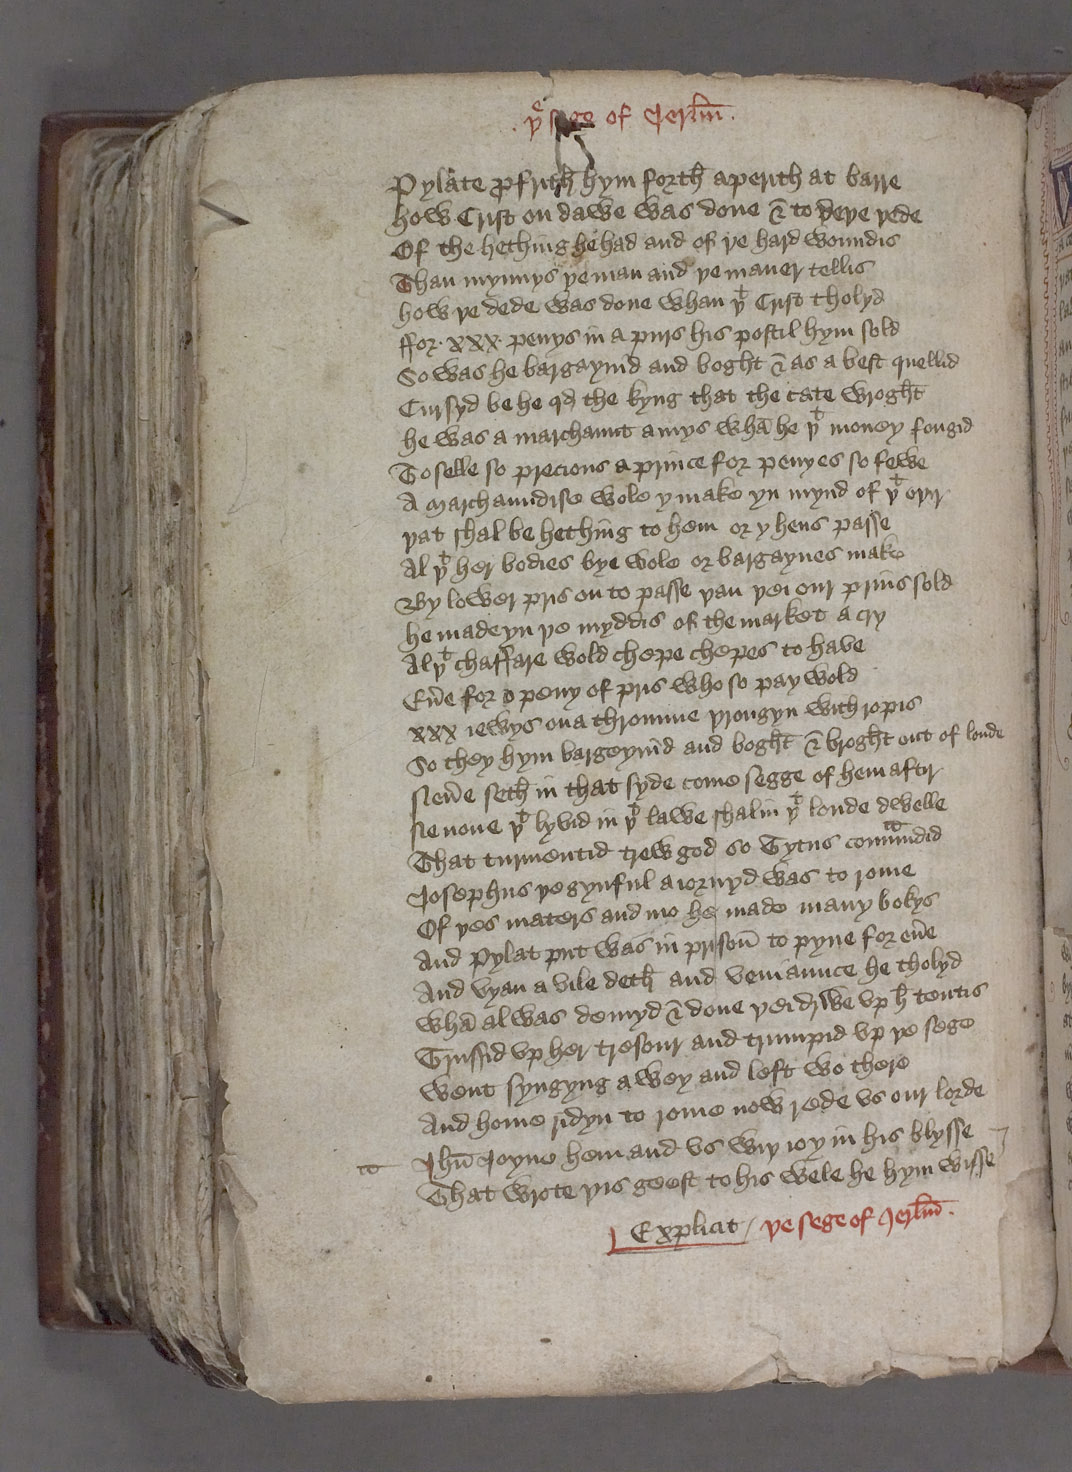 . þe sege of Jerlm̄ .
Pylate ꝓfrith hym forth aperith at barre
how Crist on dawe was done & to deþe yede
Of the hething he had and of þe hard woundis
Than mynnys þe man and þe maner tellis
how þe dede was done whan þt Crist tholyd
ffor . xxx . penys in a purs his postil hym sold
So was he bargaynid and boght & as a best quellid
Cursyd be he qd the kyng that the cate wroght
he was a marchaunt amys whā he þt money fongid
To selle so precious a prince for penyes so fewe
A marchaundise wole y make yn mynd of þt oþir
þat shal be hething to hem or y hens passe
Al þt her bodies bye wole or bargaynes make
By lower pris on to passe þan þei our prins sold
he made yn þe myddis of the market a cry
Al þt chaffare wold chepe chepes to have
Eūe for o peny of pris who so pay wold
xxx iewys on a thromme þrongyn with ropis
So they hym bargeynid and boght & broght out of londe
Neūe seth in that syde come segge of hem aftir
Ne none þt lyvid in þt lawe shal in þt londe dwelle
That turmentid trew god so Tytus commandid
Josephus þe gynful a iornyd was to rome
Of þes maters and mo he made many bokys
And Pylat put was in prisoū to pyne for eūe
And þan a vile deth and veniaunce he tholyd
whā al was demyd & done þei drwe vp h tentis
Trussid vp her tresour and trumpid vp þe sege
went syngyng awey and left wo there
And home ridyn to rome now rede vs our lorde
Jhū Joyne hem and vs wiþ ioy in his blysse
That wrote þis geest to his wele he hym wisse
Explicit / þe sege of Jerlm̄ .